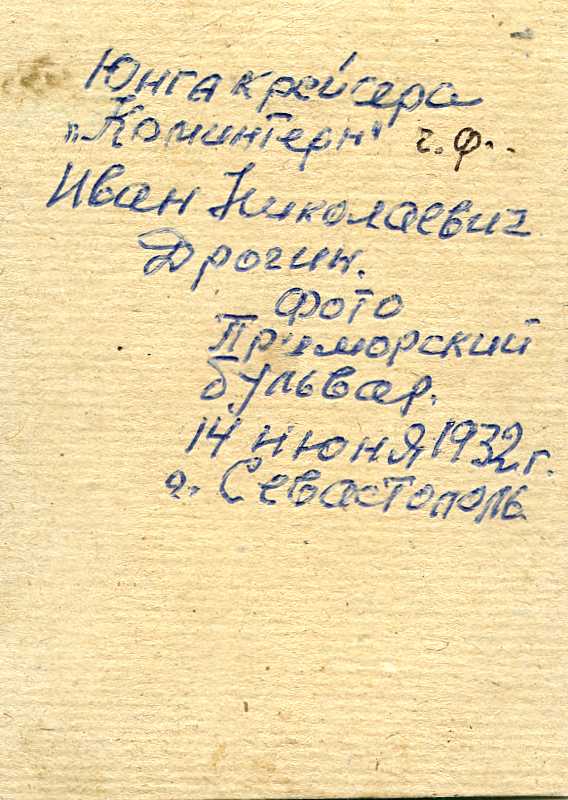 Юнга крейсера
„Коминтерн" ч.ф..
Иван Николаевич
Дрогин.
Фото
Приморский
бульвар.
14 июня 1932 г.
г. Севастополь